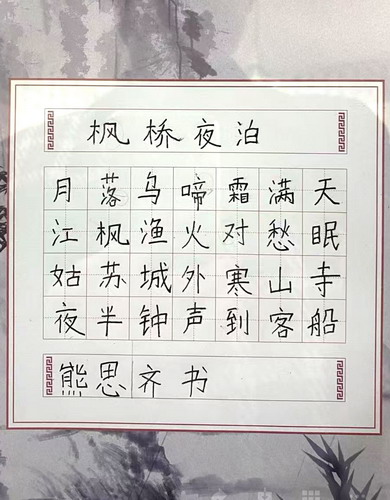 枫桥夜泊
月落乌啼霜满天
江枫渔火对愁眠
姑苏城外寒山寺
夜半钟声到客船
熊思齐书